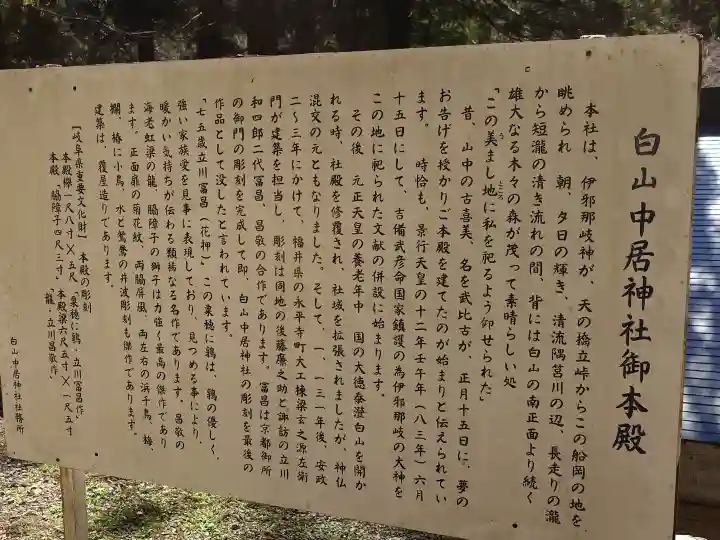 白山中居神社御本殿
本社は、伊邪那岐神が、天の擣立峠からこの船岡の地を
眺められ 朝、夕日の輝き、清流隅筥川の辺、長走りの瀧
から短瀧の清き流れの間、背には白山の南正面より続く
雄大なる木々の森が茂って素晴らしい処
「この美まし地に私を祀るよう仰せられた」
うま
ところ
昔、山中の古喜美、名を武比古が、正月十五日に、夢の
お告げを授かりご本殿を建てたのが始まりと伝えられてい
ます。 時恰も、景行天皇の十二年壬午年(八三年)六月
十五日にして、吉備武彦命国家鎮護の為伊邪那岐の大神を
この地に祀られた文献の併設に始まります。
その後 元正天皇の養老年中 国の大徳泰澄白山を開か
れる時、社殿を修覆され、社域を拡張されましたが、神仏
混交の元ともなりました。そして、一、一三一年後、安政
二〜三年にかけて、福井県の永平寺町大工棟梁玄之源左衛
門が建築を担当し、彫刻は同地の後藤慶之助と諏訪の立川
和四郎二代冨昌、昌敬の合作であります。冨昌は京都御所
の御門の彫刻を完成して即、白山中居神社の彫刻を最後の
作品として没したと言われています。
「七五歳立川冨昌(花押)」この粟穂に鶉は、鶉の優しく、
強い家族愛を見事に表現しており、見つめる事により、
暖かい気持ちが伝わる類稀なる名作であります。昌敬の
海老虹梁の龍、脇障子の獅子は力強く最高の傑作であり
ます。正面扉の菊花紋、両脇屏風、両左右の浜千鳥、梅
椿に小鳥、水と鴛鴦の丹波彫刻も傑作であります。
建築は、覆屋造りであります。
【岐阜県重要文化財】本殿の彫刻
本殿欅一尺八寸×五尺「粟穂に鶉・立川冨昌作」
本殿「脇障子四尺三寸」本殿梁六尺五寸×一尺五寸
「龍・立川昌敬作」
白山中居神社社務所